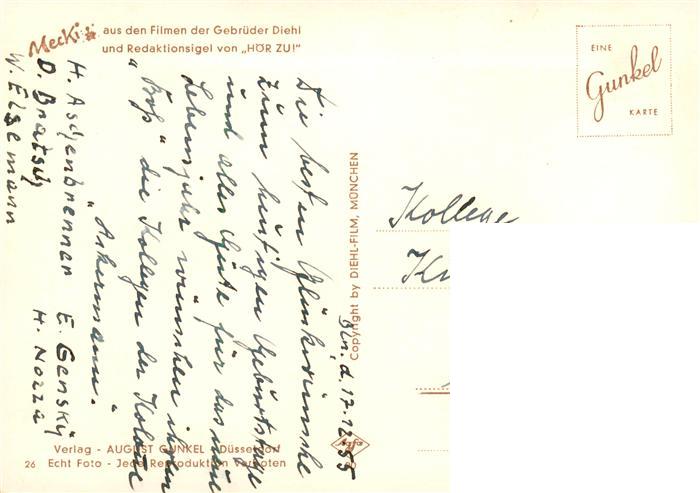 Mecki aus den Filmen der Gebrüder Diehl
und Redaktionsigel von „HÖR ZU!"
EINE
Gunkel
KARTE
Bln. d. 17.12.55
Die besten Glückwünsche
zum heutigen Geburtstage
und alles Gute für das neue
Lebensjahr wünschen ihrem
„Boß" die Kollegen der Kolonne
„Ankermann".
H. Aschenbrenner E. Gensky
D. Bratsch H. Nozza
W. Elsemann
Copyright by DIEHL-FILM, MÜNCHEN
Kollege
Verlag - AUGUST GUNKEL - Düsseldorf
26 Echt Foto - Jede Reproduktion verboten
Agfa